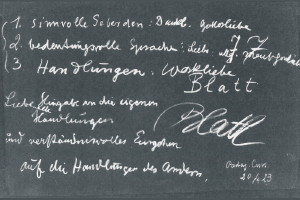 1. sinnvolle Geberden: Dankb. Gottesliebe
2. bedeutungsvolle Sprache: Liebe allg.
3 Handlungen. Werkliebe
Blatt
Liebe Hingabe an die eigenen
Handlungen
Blatt
und verständnisvolles Eingehen
auf die Handlungen des Andern.
20/4 23